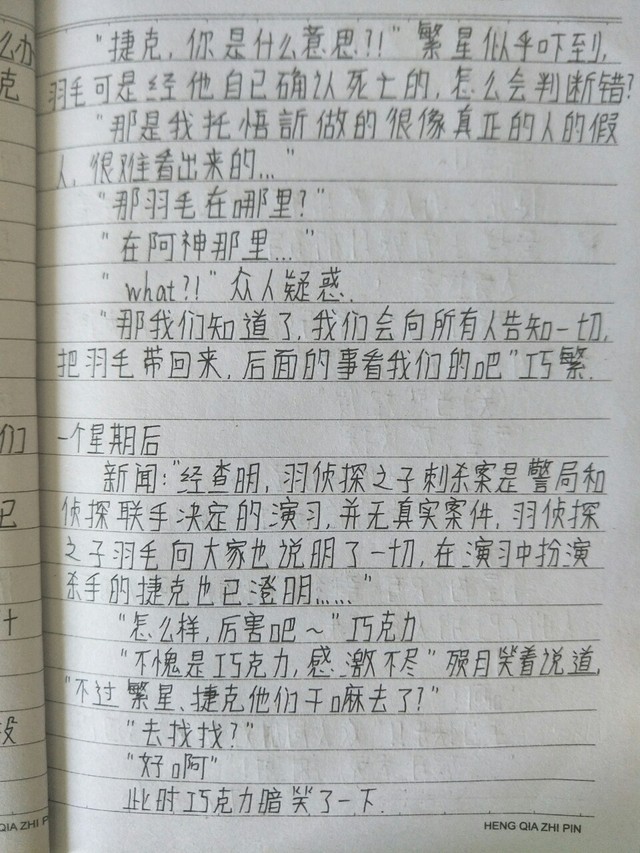 么办
"捷克,你是什么意思?!"繁星似乎吓到,
克
羽毛可是经他自己确认死亡的,怎么会判断错?
"那是我托悟訢做的很像真正的人的假
人,很难看出来的..."
"那羽毛在哪里?"
"在阿神那里..."
"what?!"众人疑惑.
"那我们知道了,我们会向所有人告知一切,
把羽毛带回来,后面的事看我们的吧"巧繁.
们
一个星期后
新闻:"经查明,羽侦探之子刺杀案是警局和
已
侦探联手决定的演习,并无真实案件,羽侦探
之子羽毛向大家也说明了一切,在演习中扮演
杀手的捷克也已澄明......"
十
"怎么样,厉害吧~"巧克力
"不愧是巧克力,感激不尽"殒月笑着说道,
"不过繁星、捷克他们干嘛去了?"
没
"去找找?"
"好啊"
此时巧克力暗笑了一下.
QIA ZHI PIN
HENG QIA ZHI PIN